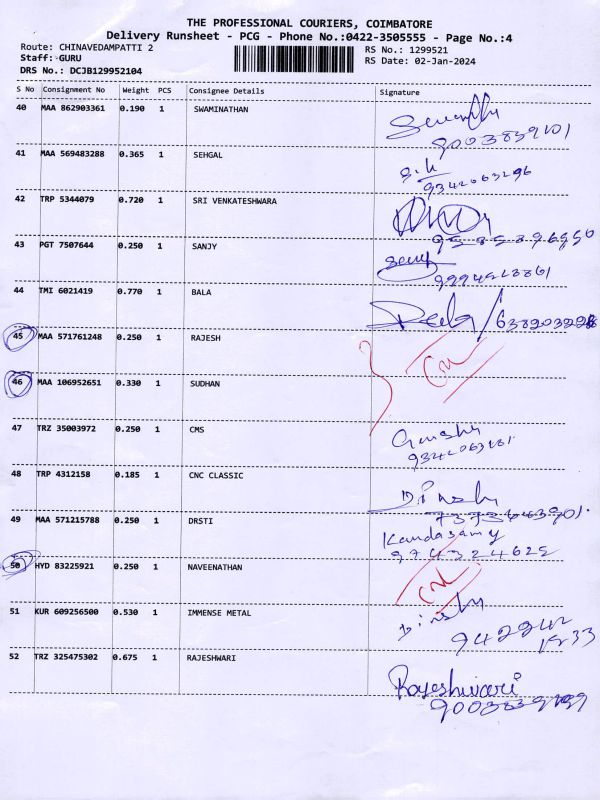 THE PROFESSIONAL COURIERS, COIMBATORE
Delivery Runsheet - PCG - Phone No.:0422-3505555 - Page No.:4
Route: CHINAVEDAMPATTI 2 RS No.: 1299521
Staff: GURU RS Date: 02-Jan-2024
DRS No.: DCJB129952104
S No Consignment No Weight PCS Consignee Details Signature
40 MAA 862903361 0.190 1 SWAMINATHAN
9003839101
41 MAA 569483288 0.365 1 SEHGAL
9342063296
42 TRP 5344079 0.720 1 SRI VENKATESHWARA
43 PGT 7507644 0.250 1 SANJY
44 TMI 6021419 0.770 1 BALA
45 MAA 571761248 0.250 1 RAJESH
46 MAA 106952651 0.330 1 SUDHAN
47 TRZ 35003972 0.250 1 CMS
48 TRP 4312158 0.185 1 CNC CLASSIC
Dinesh
49 MAA 571215788 0.250 1 DRSTI
Kandasamy
9743224625
50 HYD 83225921 0.250 1 NAVEENATHAN
51 KUR 609256500 0.530 1 IMMENSE METAL
Dinesh
52 TRZ 325475302 0.675 1 RAJESHWARI
Rajeshwari